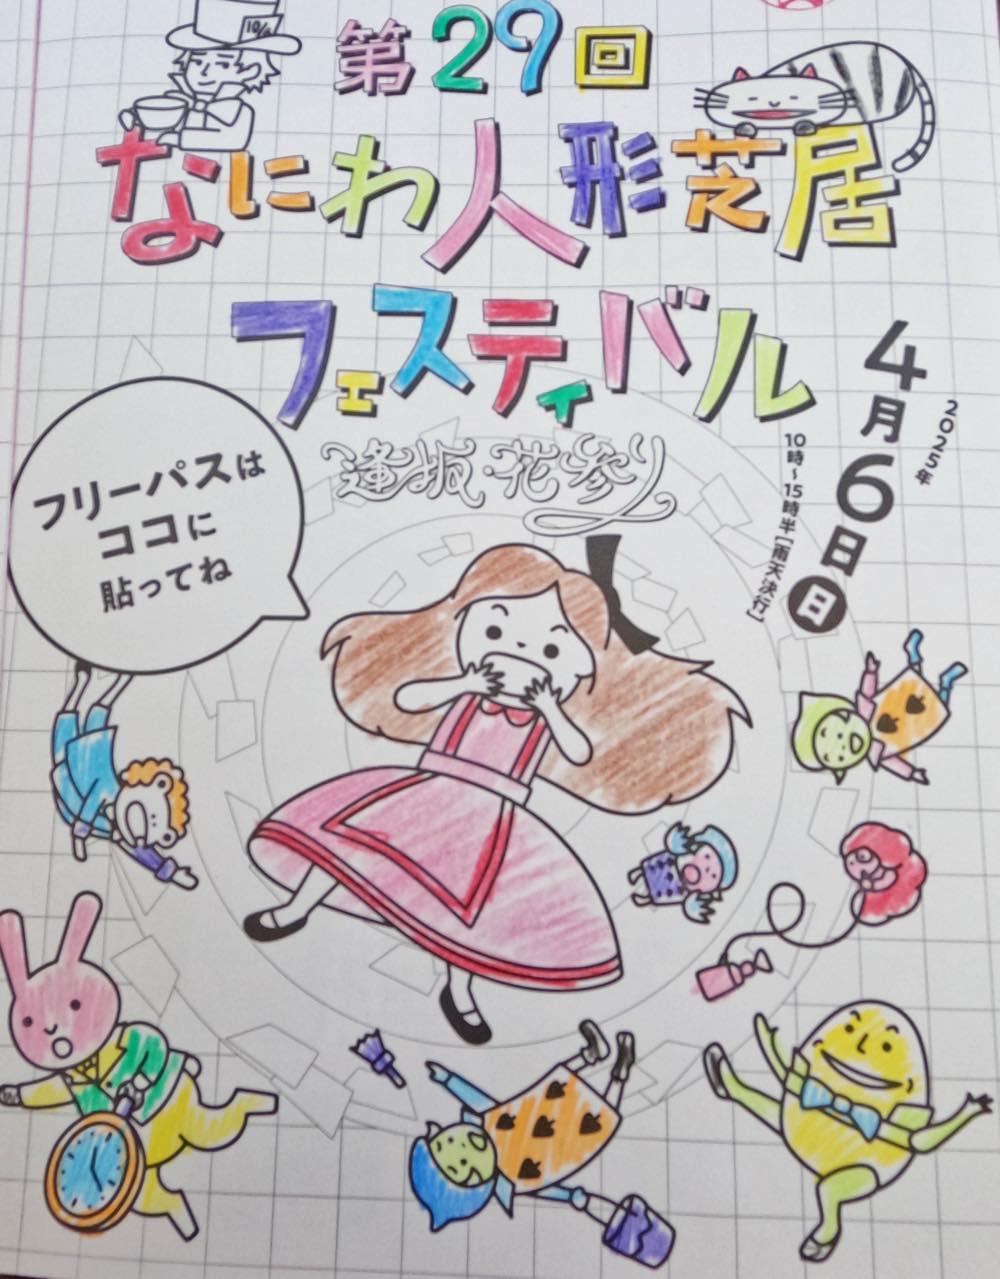 第29回
なにわ人形芝居
フェスティバル
逢坂・花参り
2025年
4月6日日
10時~15時半[雨天決行]
フリーパスは
ココに
貼ってね